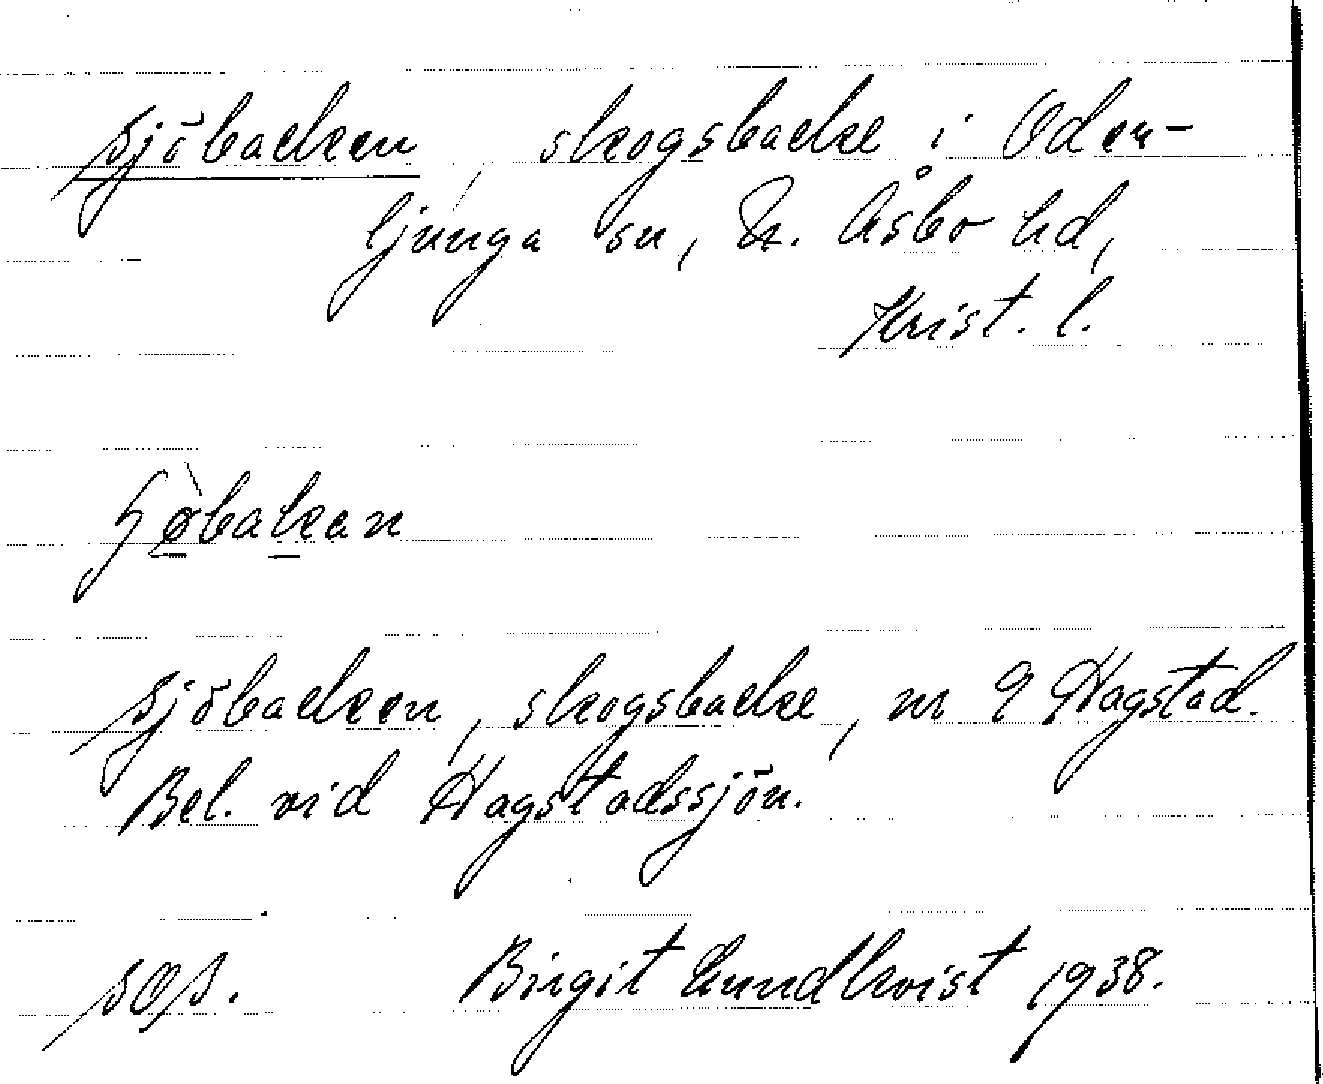 Sjöbacken, skogsbacke i Oden-
ljunga sn, N. Åsbo hd,
Krist. l.
Sjöbacken, skogsbacke, nr 9 Hagstad.
Bel. vid Hagstadssjön.
Birgit Lundkvist 1938.